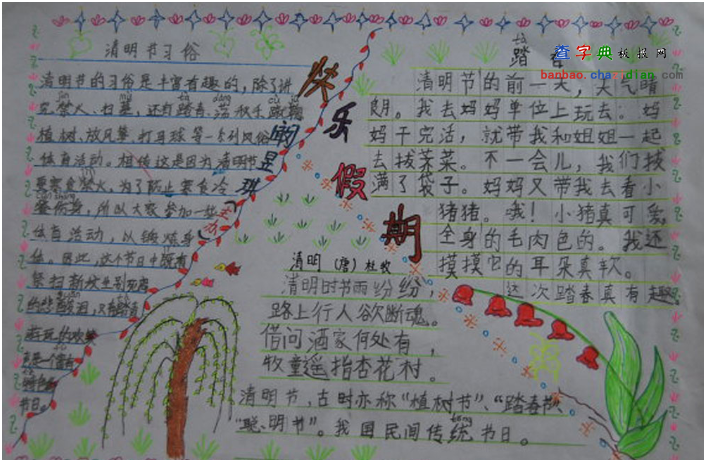 清明节习俗
清明节的习俗是丰富有趣的，除了讲
究禁火、扫墓，还有踏青、荡秋千、蹴鞠
植树、放风筝、打马球等一系列风俗
体育活动。相传这是因为清明节
要寒食禁火，为了防止寒食冷
餐伤身，所以大家参加一些
体育活动，以锻炼身
体。因此，这个节日中既有
祭扫新坟生别死离
的悲酸泪，又有踏青
游玩的欢笑
声，是一个富有
特色的
节日。
快乐假期
踏青
清明节的前一天，天气晴
朗。我去妈妈单位上玩去。妈
妈干完活，就带我和姐姐一起
去拔荠菜。不一会儿，我们拔
满了袋子。妈妈又带我去看小
猪猪。哦！小猪真可爱，
全身的毛肉色的。我还
摸摸它的耳朵真软。
这次踏春真有趣
清明 （唐）杜牧
清明时节雨纷纷，
路上行人欲断魂。
借问酒家何处有，
牧童遥指杏花村。
清明节，古时亦称“植树节”、“踏春节、
“聪明节”。我国民间传统节日。
查字典板报网
banbao.chazidian.com